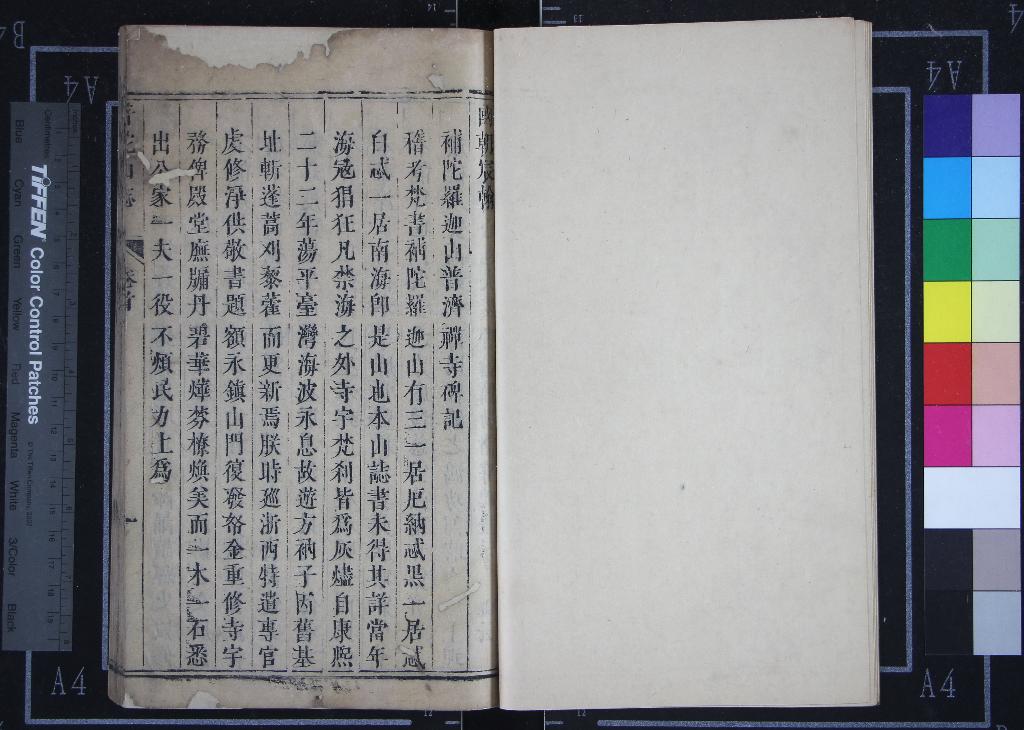 補陀羅迦山普濟禪寺碑記
稽考梵書補陀羅迦山有三一居厄納忒黑一居忒
白忒一居南海卽是山也本山誌書未得其詳當年
海寇猖狂凡禁海之外寺宇梵刹皆爲灰燼自康熙
二十二年蕩平臺灣海波永息故遊方衲子因舊基
址斬蓬蒿刈藜藿而更新焉朕時廵浙西特遣專官
虔修淨供敬書題額永鎭山門復發帑金重修寺宇
務俾殿堂廡牖丹碧華燁棼橑煥矣而一木一石悉
出公家一夫一役不煩民力上爲
卷首
一
TIFFEN Color Control Patches
Blue
Cyan
Green
Yellow
Red
Magenta
White
3/Color
Black
A4
A4
A4
A4